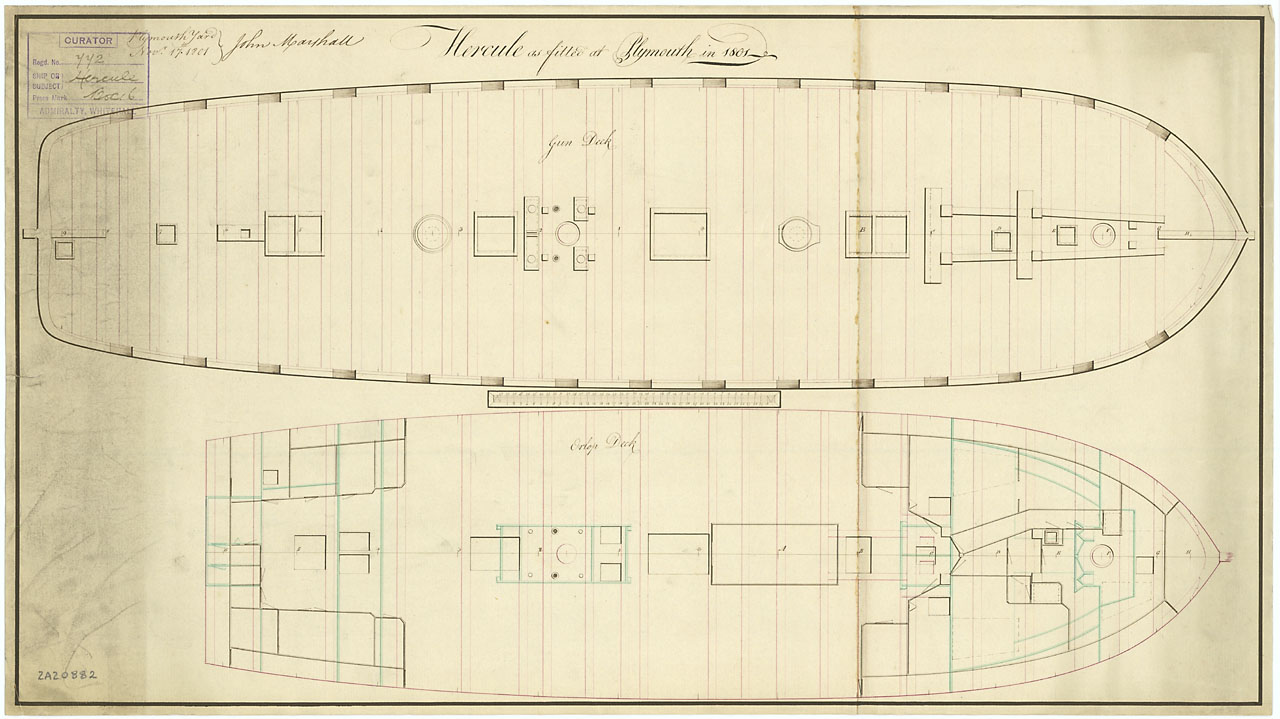 Hercule as fitted at Plymouth in 1801
Plymouth Yard
Novr. 17th 1801
John Marshall
CURATOR
Regd. No. 772
SHIP OR SUBJECT Hercule
Press Mark
ADMIRALTY, WHITEHALL
Gun Deck
Orlop Deck
ZAZ0882